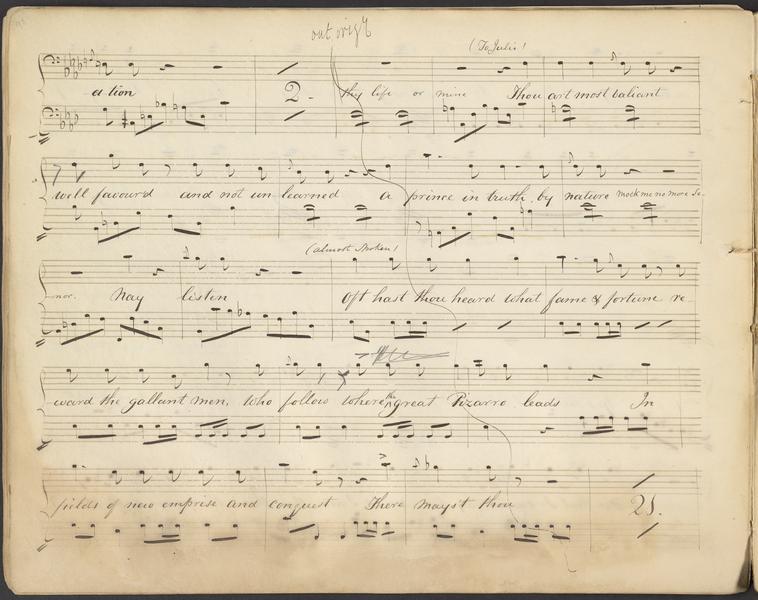 out origl
(To Julis!
-ation 2. thy life or mine Thou art most valiant
well favour'd and not un learned a prince in truth. by nature mock me no more Se-
(almost spoken!
nor. Nay listen Oft hast thou heard what fame & fortune re-
ward the gallant men, who follow where the great Pizarro leads In
fields of new emprise and conquest There mayst thou 21.